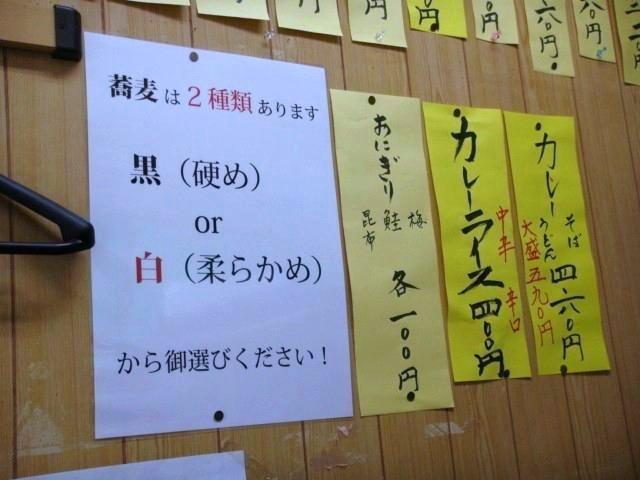 蕎麦は2種類あります
黒（硬め）
or
白（柔らかめ）
から御選びください！
おにぎり
梅
鮭
昆布
各一〇〇円
カレーライス四〇〇円
中辛
辛口
カレー
そば
うどん
四六〇円
大盛五九〇円
円
円
円
円
円
六〇円
八〇円